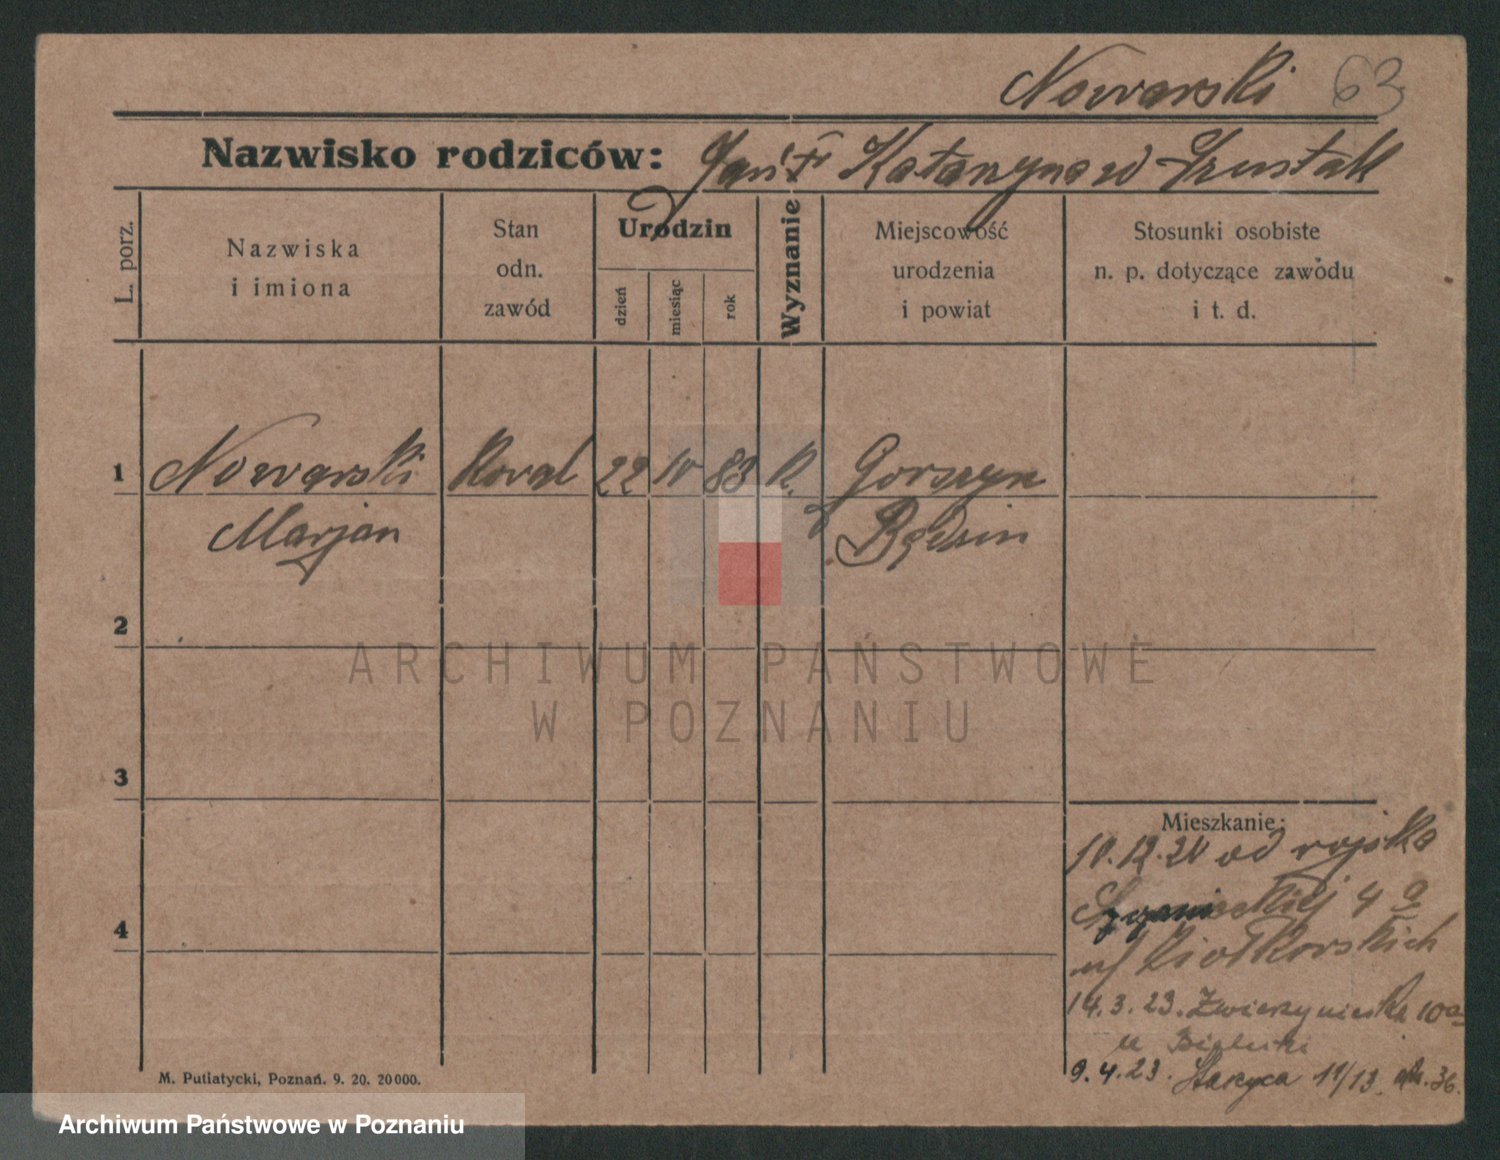 Nowarski 63
Nazwisko rodziców: Jan Katarzyna
L. porz.
Nazwiska
i imiona
Stan
odn.
zawód
Urodzin
dzień
miesiąc
rok
Wyznanie
Miejscowość
urodzenia
i powiat
Stosunki osobiste
n. p. dotyczące zawodu
i t. d.
1 Nowarski Koval 22 10 83 K.
Marjan Będzin
2
3
4
Mieszkanie:
od
4 a
14.3.23. Zwierzyniecka 10a
9.4.23. 11/13 36.
M. Putiatycki, Poznań. 9. 20. 20000.
ARCHIWUM PAŃSTWOWE
W POZNANIU
Archiwum Państwowe w Poznaniu